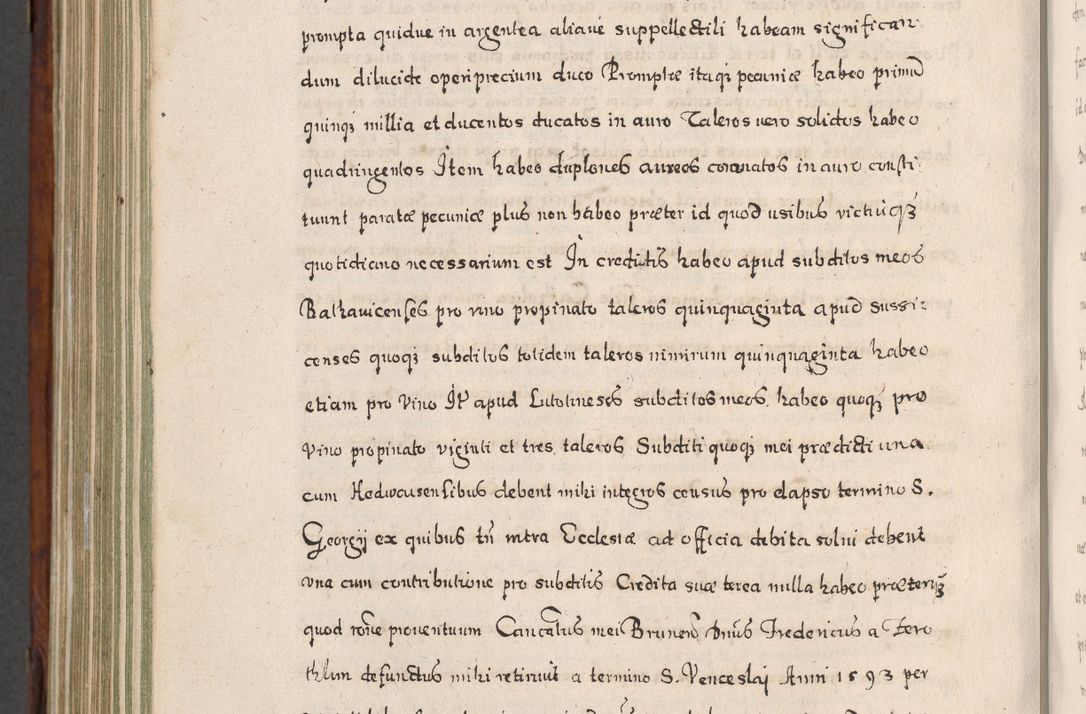 prompta quidue in argentea aliaue suppellectili habeam significan
dum dilucide operiprecium duco Promptæ itaqȝ pecuniæ habeo primū
quinqȝ millia et ducentos ducatos in auro Taleros uero solidos habeo
quadringentos Item habeo duplones aureos coronatos in auro consti:
tuunt paratæ pecuniæ plus non habeo præter id quod usibus victiūqȝ
quotidiano necessarium est In creditis habeo apud subditos meos
Balhauicenses pro vino propinato taleros quinquaginta apud sussi:
censes quoqȝ subditos totidem taleros nimirum quinquaginta habeo
etiam pro vino It apud Lutotineses subditos meos, habeo quoqȝ pro
vino propinato viginti et tres taleros Subditi quoqȝ mei prædicti una
cum Hedwousensibus debent mihi integros census pro elapso termino S.
Georgij ex quibus tñ intra Ecclesiæ ad officia debita solui debent
vna cum contributione pro subditis Credita suæ terea nulla habeo præterqȝ
quod rõne prouentuum Cancellatus mei Brunens Dnus Fredericus a Zero
thlin defunctus mihi retinuit a termino S. Venceslaj Anni 1593 per